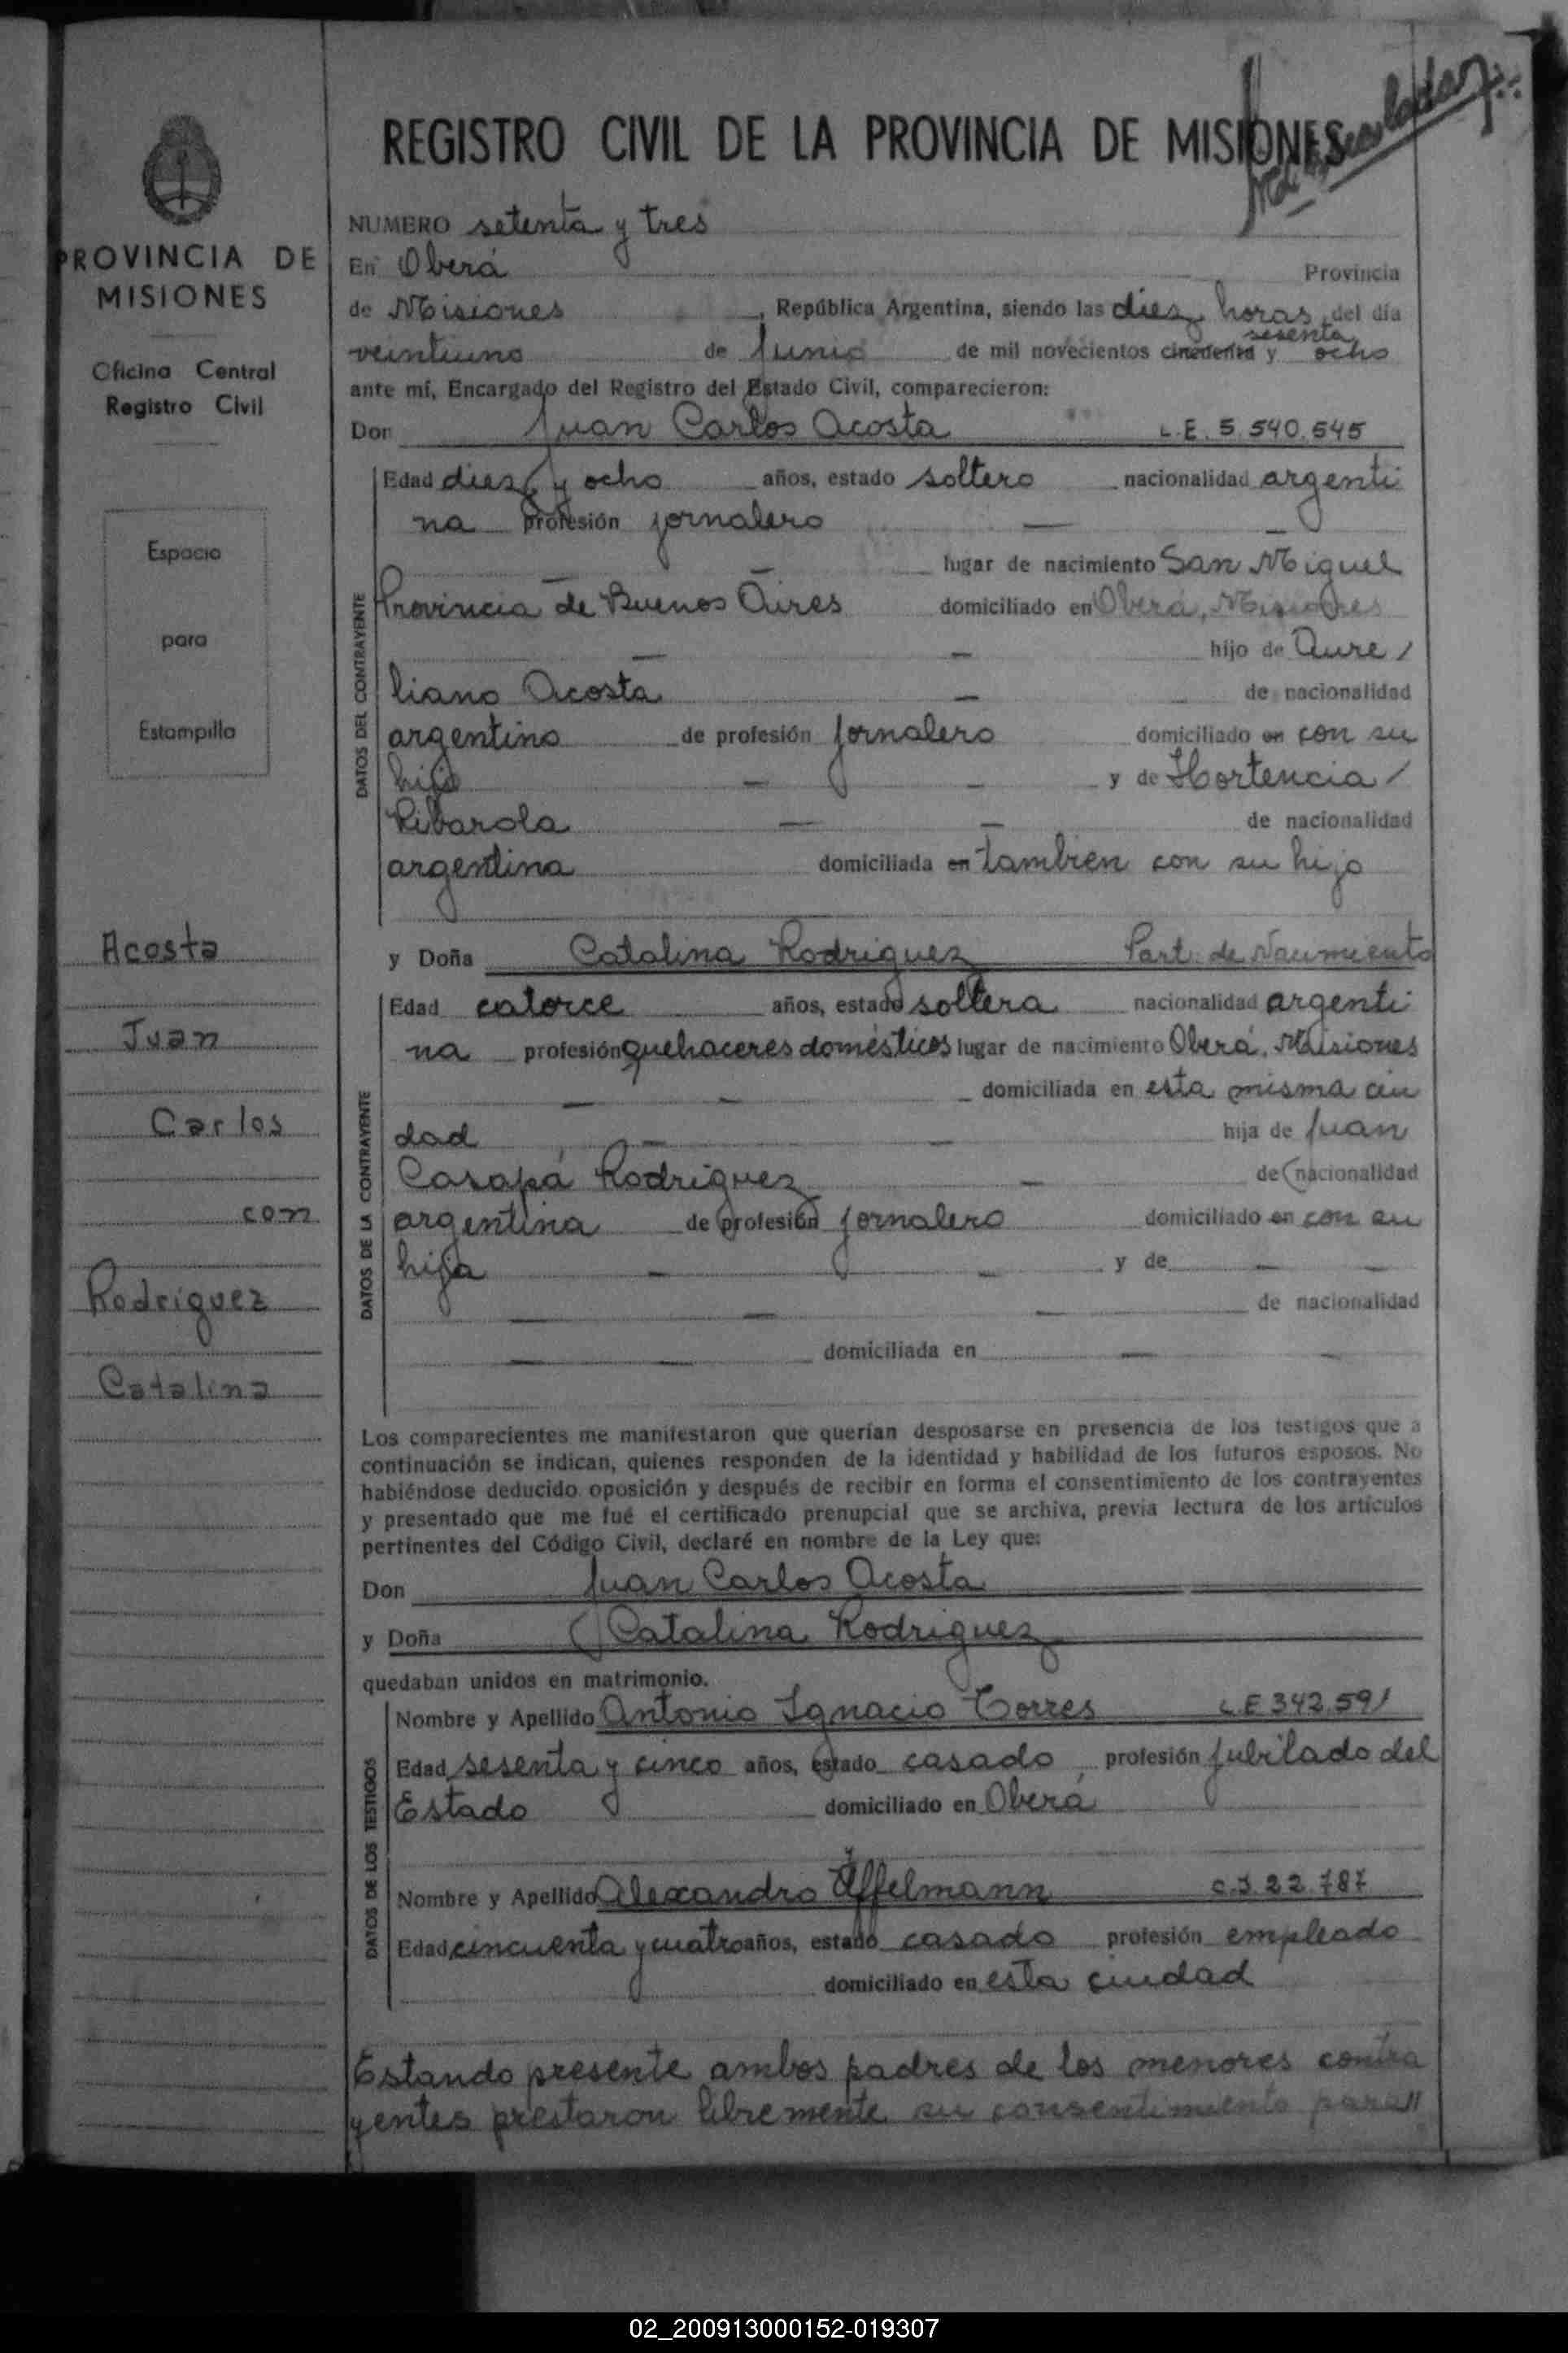 REGISTRO CIVIL DE LA PROVINCIA DE MISIONES
PROVINCIA DE
MISIONES
Oficina Central
Registro Civil
Espacio
para
Estampilla
Acosta
Juan
Carlos
con
Rodríguez
Catalina
NUMERO setenta y tres
En Oberá Provincia
de Misiones, República Argentina, siendo las diez horas del día
sesenta
veintiuno de Junio de mil novecientos cincuenta y ocho
ante mí, Encargado del Registro del Estado Civil, comparecieron:
Don Juan Carlos Acosta L.E. 5.540.545
DATOS DEL CONTRAYENTE
Edad diez y ocho años, estado soltero nacionalidad argenti
na profesión jornalero —
lugar de nacimiento San Miguel
Provincia de Buenos Aires domiciliado en Oberá, Misiones
— — hijo de Aure/
liano Acosta — de nacionalidad
argentino de profesión jornalero domiciliado en con su
hijo — — y de Hortencia/
Ribarola — — de nacionalidad
argentina domiciliada en tambien con su hijo
y Doña Catalina Rodriguez Part. de Nacimiento
DATOS DE LA CONTRAYENTE
Edad catorce años, estado soltera nacionalidad argenti
na profesión quehaceres domésticos lugar de nacimiento Oberá, Misiones
— — domiciliada en esta misma ciu
dad — — hija de Juan
Casapá Rodriguez — de nacionalidad
argentina de profesión jornalero domiciliado en con su
hija — — y de — —
— — — de nacionalidad
— — domiciliada en — —
Los comparecientes me manifestaron que querían desposarse en presencia de los testigos que a
continuación se indican, quienes responden de la identidad y habilidad de los futuros esposos. No
habiéndose deducido oposición y después de recibir en forma el consentimiento de los contrayentes
y presentado que me fué el certificado prenupcial que se archiva, previa lectura de los artículos
pertinentes del Código Civil, declaré en nombre de la Ley que:
Don Juan Carlos Acosta
y Doña Catalina Rodriguez
quedaban unidos en matrimonio.
DATOS DE LOS TESTIGOS
Nombre y Apellido Antonio Ignacio Torres L.E 342.591
Edad sesenta y cinco años, estado casado profesión jubilado del
Estado domiciliado en Oberá
Nombre y Apellido Alexandro Äffelmann C.I. 22.787
Edad cincuenta y cuatro años, estado casado profesión empleado
domiciliado en esta ciudad
Estando presente ambos padres de los menores contra
yentes prestaron libremente su consentimiento para//
02_200913000152-019307